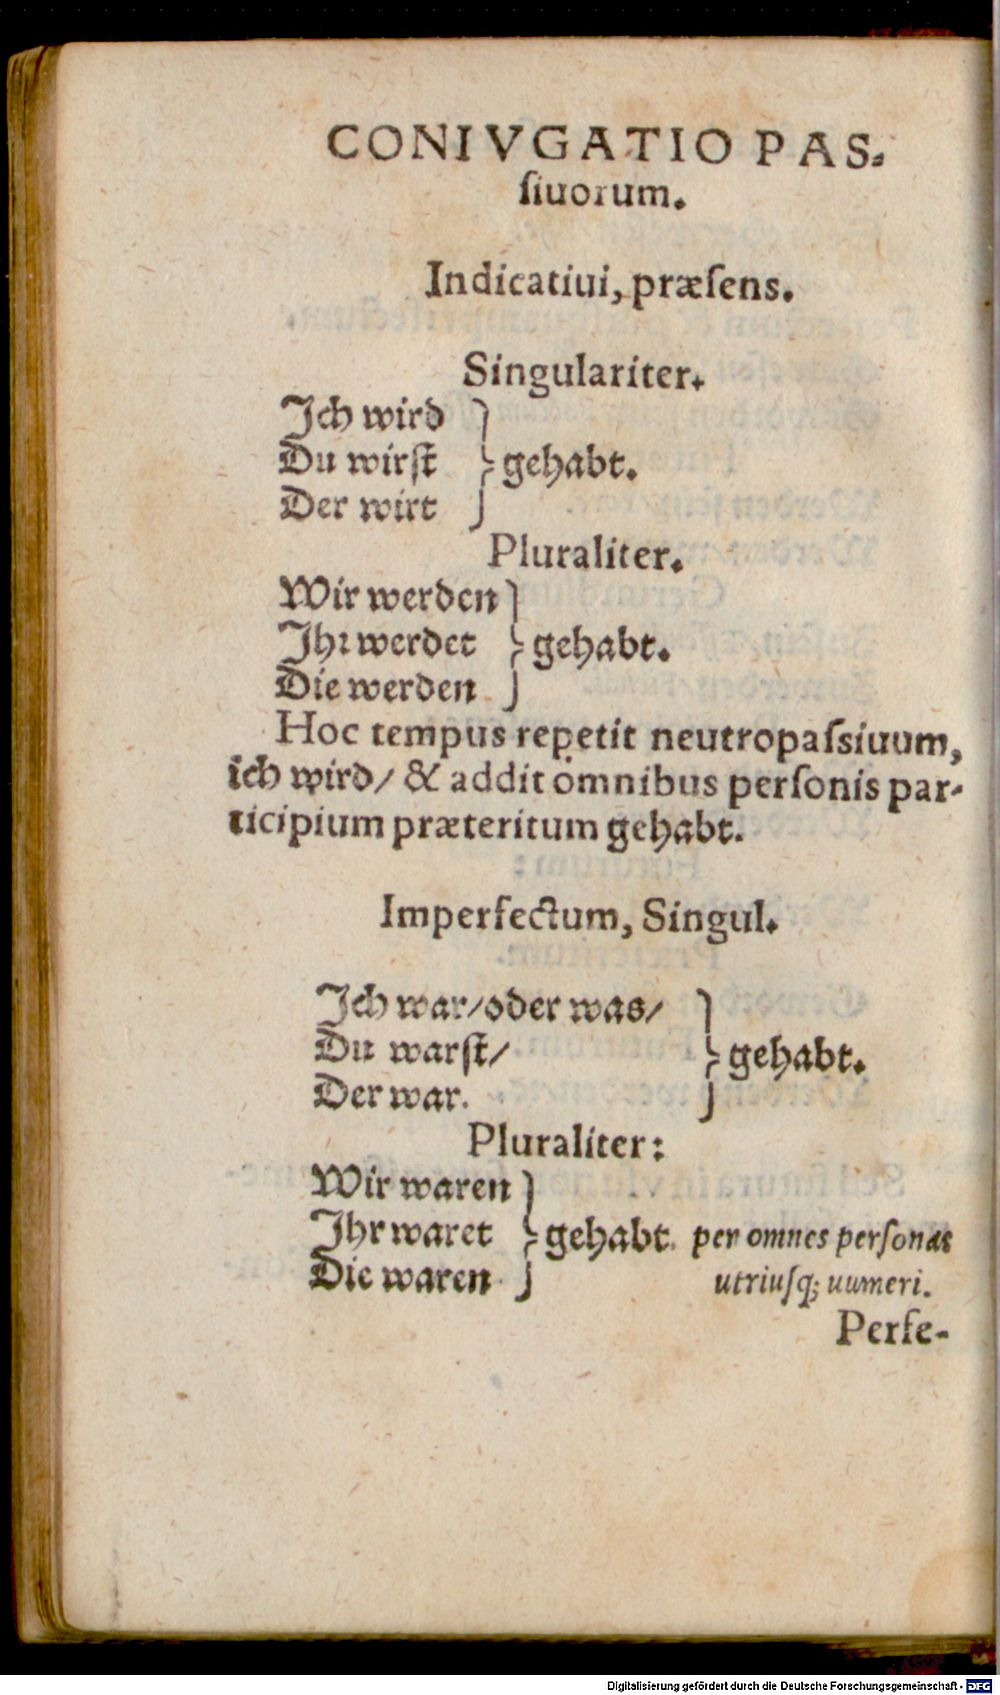 CONIVGATIO PAS-
ſiuorum.
Indicatiui, præſens.
Singulariter.
Ich wird
Du wirſt } gehabt.
Der wirt
Pluraliter.
Wir werden
Ihr werdet } gehabt.
Die werden
Hoc tempus repetit neutropaſsiuum,
ich wird/ & addit omnibus perſonis par-
ticipium præteritum gehabt.
Imperfectum, Singul.
Ich war/oder was/
Du warſt/ } gehabt.
Der war.
Pluraliter:
Wir waren
Ihr waret } gehabt. per omnes perſonas
Die waren utriuſq; uumeri.
Perfe-
Digitalisierung gefördert durch die Deutsche Forschungsgemeinschaft - DFG